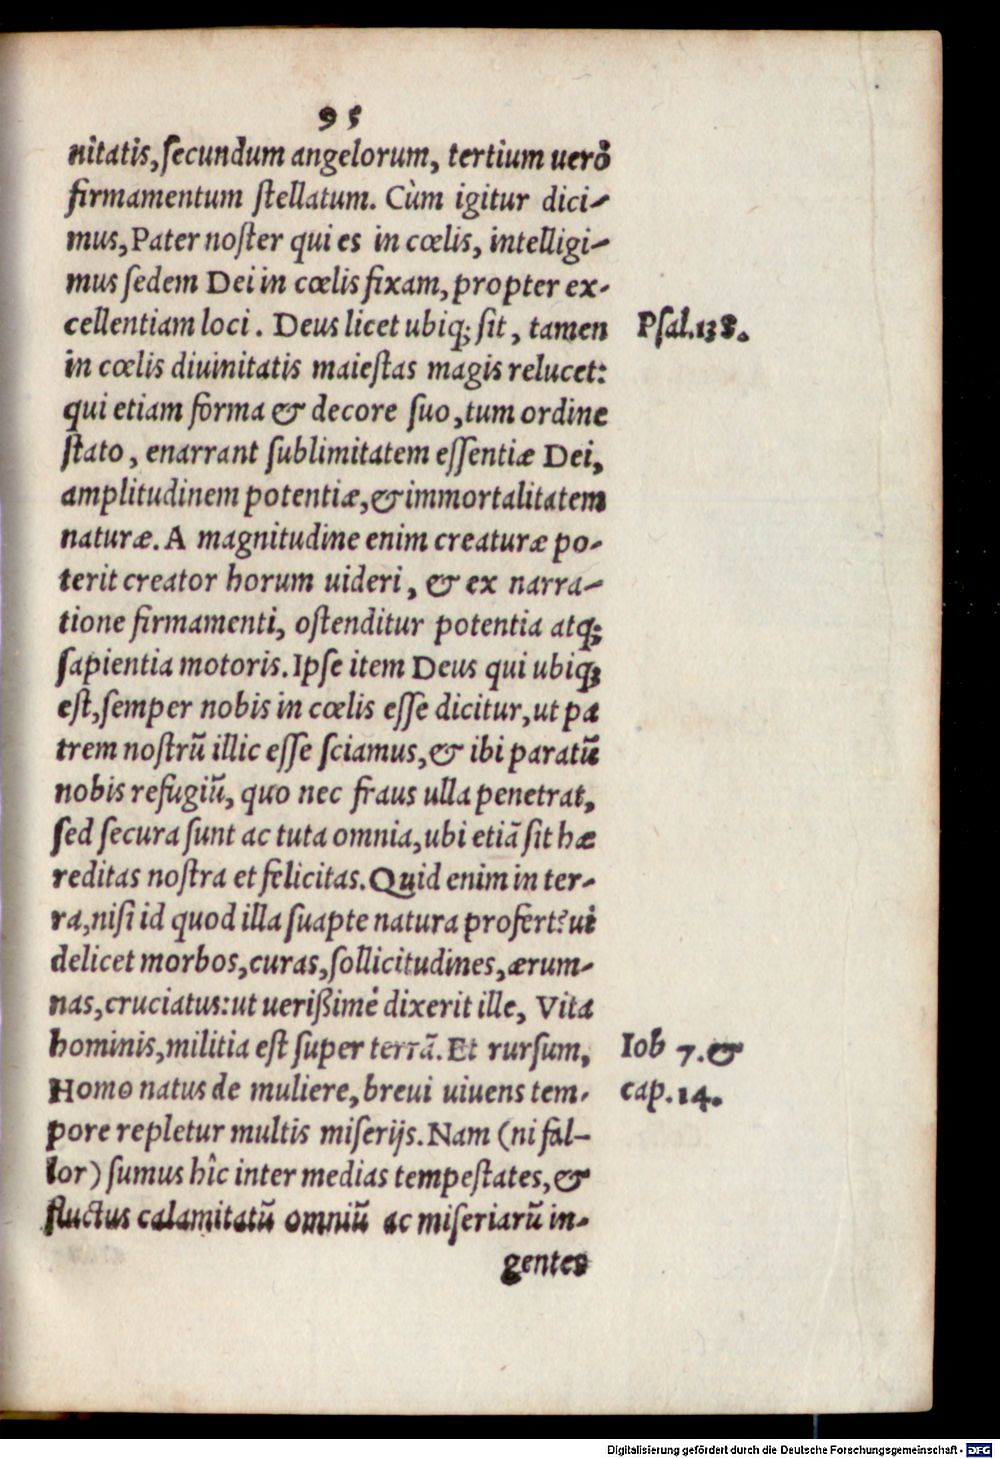 95
nitatis, ſecundum angelorum, tertium uerò
firmamentum ſtellatum. Cùm igitur dici-
mus, Pater noſter qui es in cœlis, intelligi-
mus ſedem Dei in cœlis fixam, propter ex-
cellentiam loci. Deus licet ubiq; ſit, tamen
Pſal.138.
in cœlis diuinitatis maieſtas magis relucet:
qui etiam forma & decore ſuo, tum ordine
ſtato, enarrant ſublimitatem eſſentiæ Dei,
amplitudinem potentiæ, & immortalitatem
naturæ. A magnitudine enim creaturæ po-
terit creator horum uideri, & ex narra-
tione firmamenti, oſtenditur potentia atq;
ſapientia motoris. Ipſe item Deus qui ubiq;
eſt, ſemper nobis in cœlis eſſe dicitur, ut pa
trem noſtrũ illic eſſe ſciamus, & ibi paratũ
nobis refugiũ, quo nec fraus ulla penetrat,
ſed ſecura ſunt ac tuta omnia, ubi etiã ſit hæ
reditas noſtra et felicitas. Quid enim in ter-
ra, niſi id quod illa ſuapte natura profert? ui
delicet morbos, curas, ſollicitudines, ærum-
nas, cruciatus: ut uerißimè dixerit ille, Vita
hominis, militia eſt ſuper terrã. Et rurſum,
Iob 7. &
Homo natus de muliere, breui uiuens tem-
cap.14.
pore repletur multis miſerijs. Nam (ni fal-
lor) ſumus hîc inter medias tempeſtates, &
fluctus calamitatũ omniũ ac miſeriarũ in-
gentes
Digitalisierung gefördert durch die Deutsche Forschungsgemeinschaft - DFG